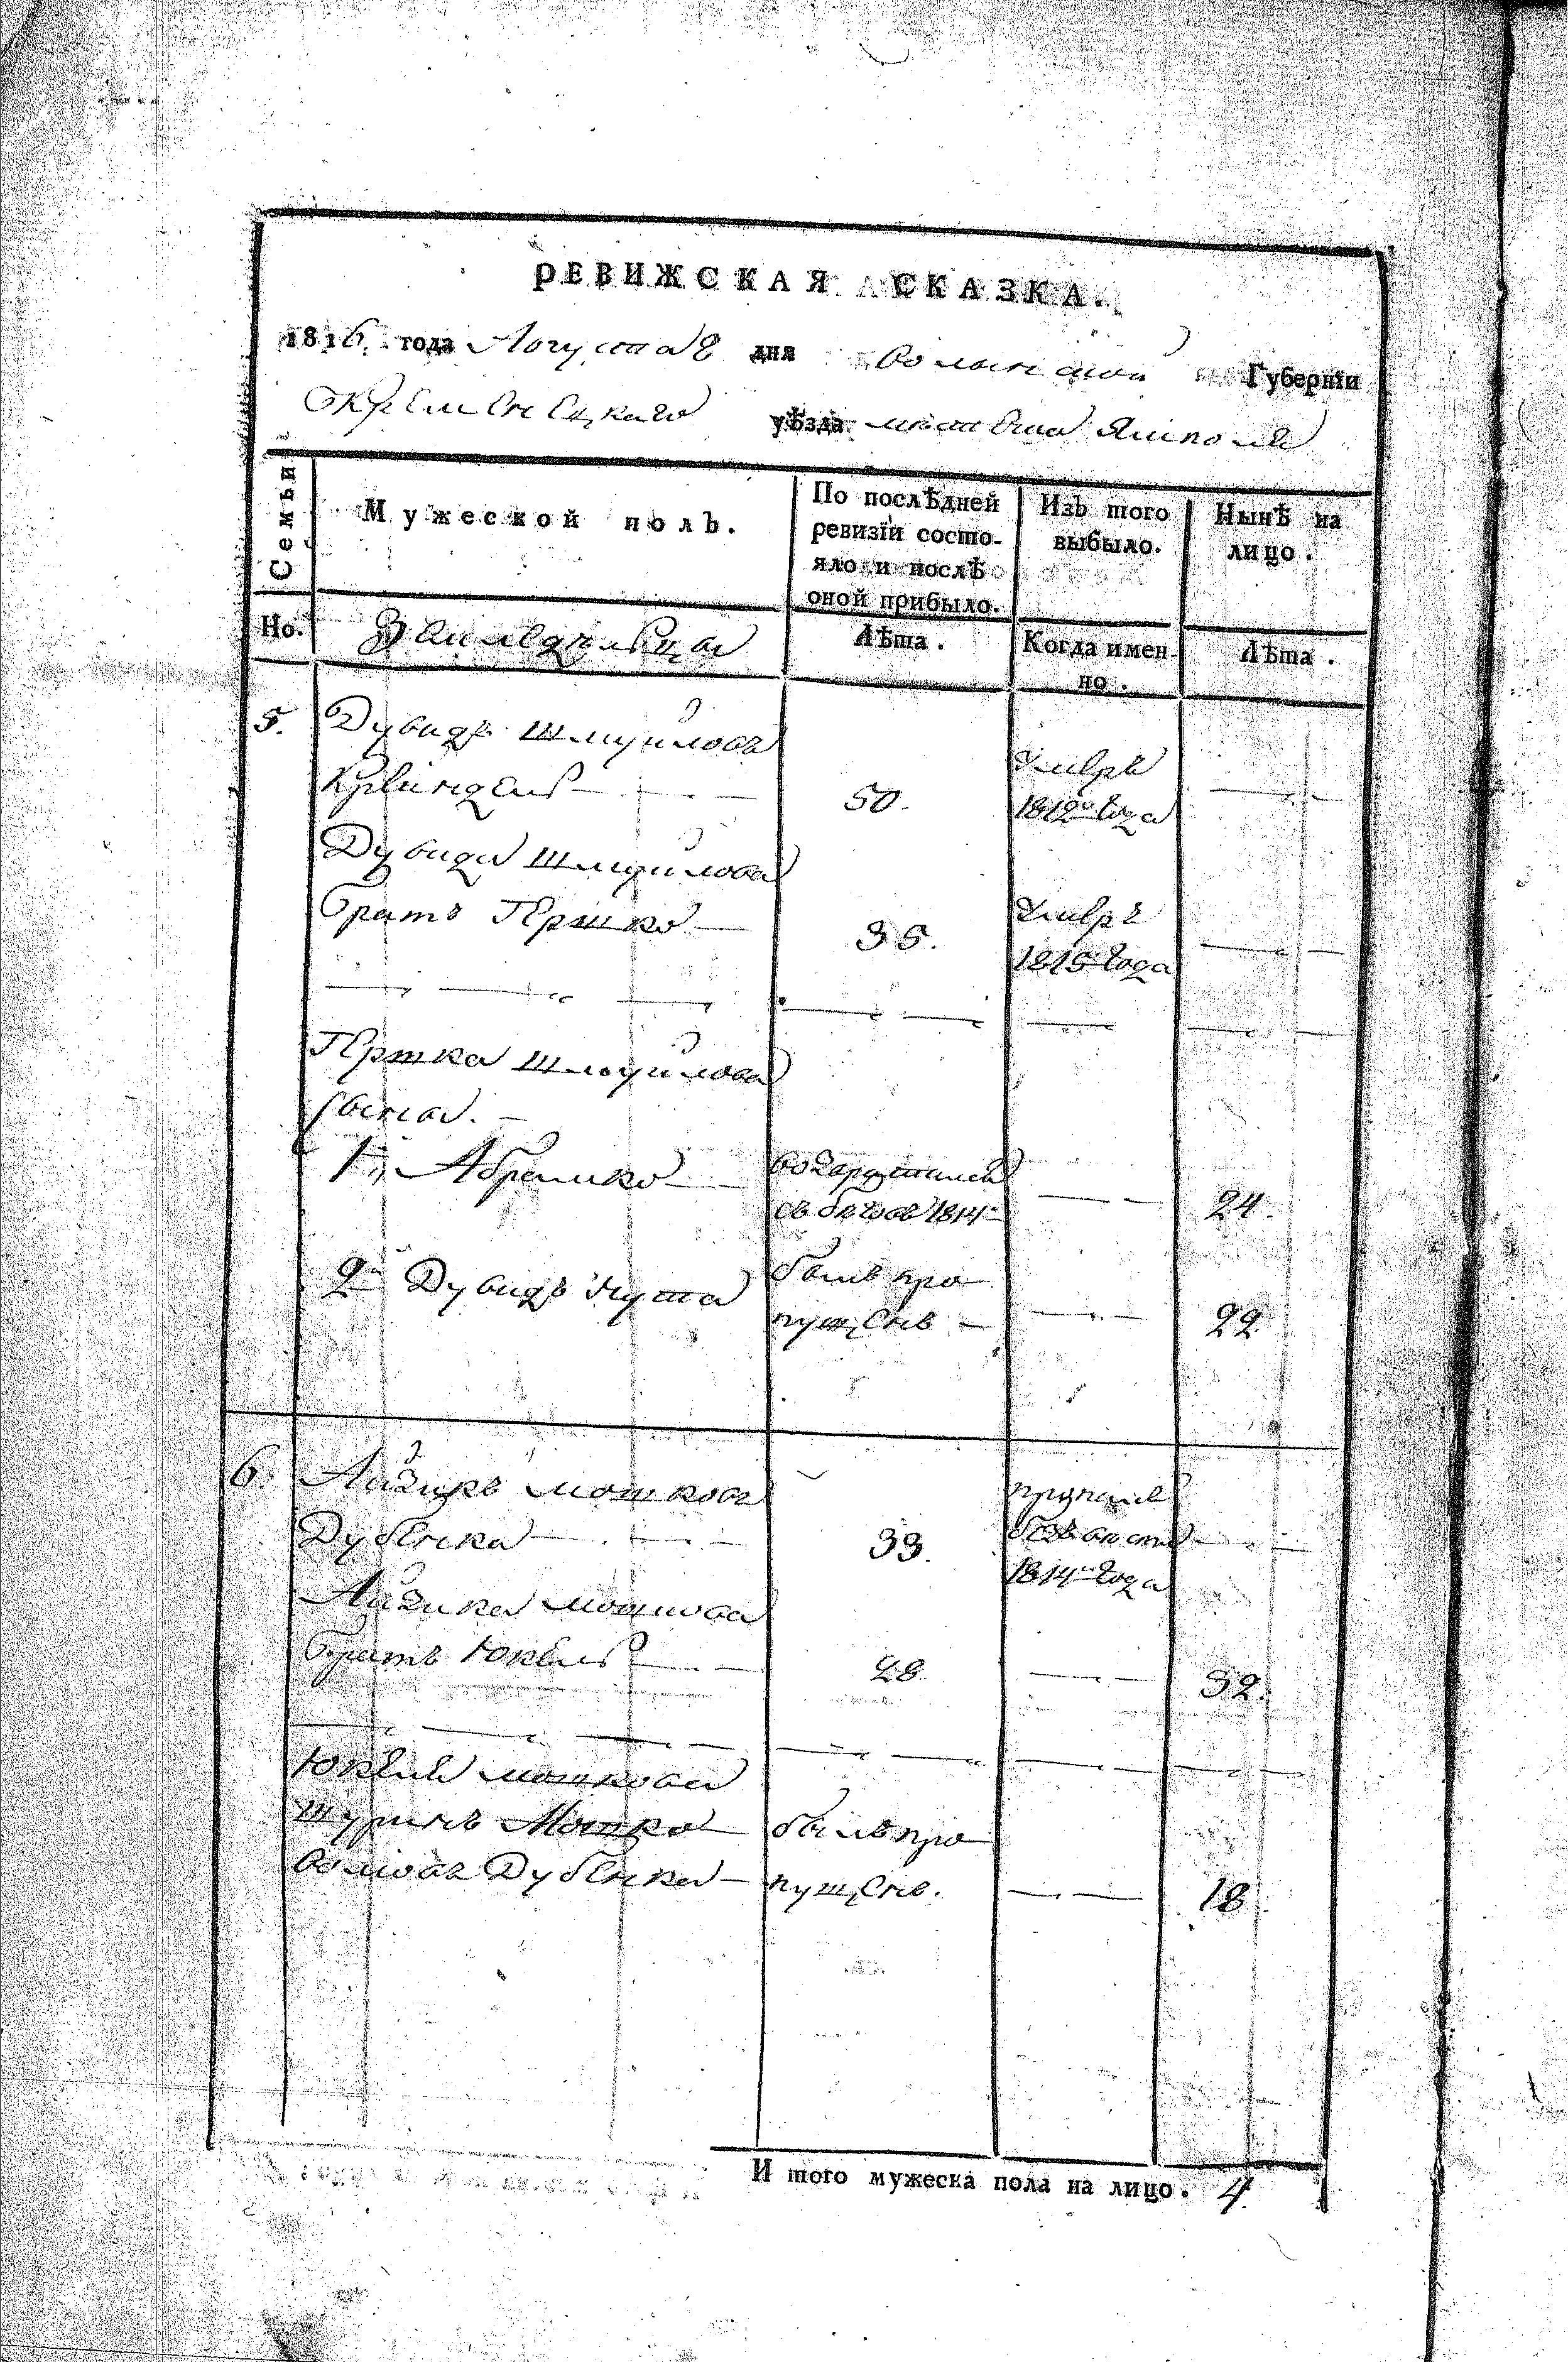 РЕВИЖСКАЯ СКАЗКА.
1816. года Августа 8 дня Волынской Губернїи
Кременецкаго уѣзда мѣстечка Ямполя
Семьи
Мужеской полъ.
По послѣдней ревизїи состояло и послѣ оной прибыло.
Изъ того выбыло.
Нынѣ на лицо.
Но.
Лѣта.
Когда именно.
Лѣта.
5. Дувидъ Шмуиловъ
50.
умеръ
1812го года
Дувида Шмуилова
братъ Гершко
35.
умеръ
1815 года
Гершка Шмуилова
сына.
1й Абрамко
24
2й Дувидъ Нута
былъ про
пущенъ
22
6. Айзикъ Мошковъ
Дубенка
33.
1814го года
Айзика Мошкова
братъ Юкель
28.
32.
Юкеля Мошкова
шуринъ Мошко
Дубенка
былъ про
пущенъ.
18
И того мужеска пола на лицо. 4